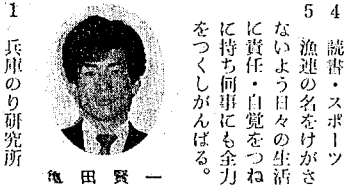 4　読書・スポーツ
5　漁連の名をけがさ
ないよう日々の生活
に責任・自覚をつね
に持ち何事にも全力
をつくしがんばる。
亀田賢一
1　兵庫のり研究所